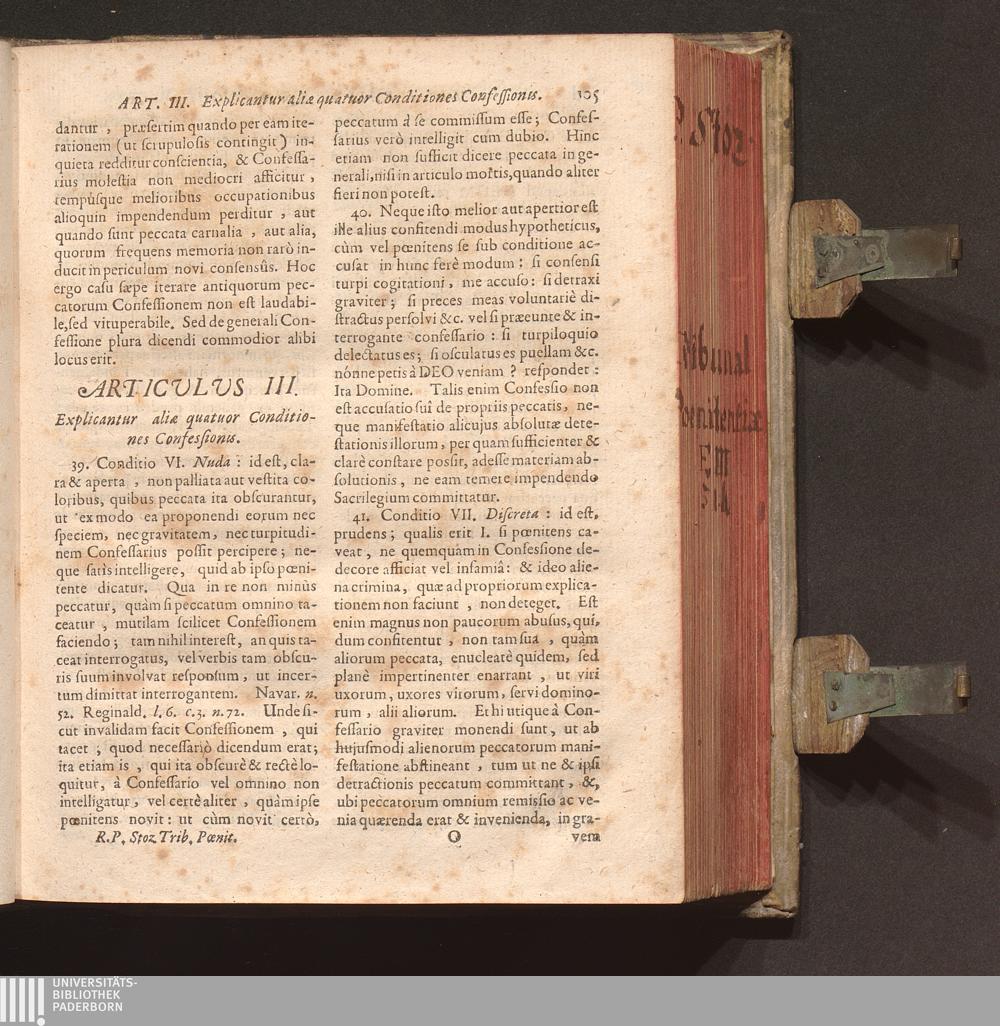 ART. III. Explicantur aliæ quatuor Conditiones Confeſſionis. 105
dantur , præſertim quando per eam ite-
rationem (ut ſcrupuloſis contingit) in-
quieta redditur conſcientia, & Confeſſa-
rius moleſtia non mediocri afficitur ,
tempúſque melioribus occupationibus
alioquin impendendum perditur , aut
quando ſunt peccata carnalia , aut alia,
quorum frequens memoria non rarò in-
ducit in periculum novi conſensûs. Hoc
ergo caſu ſæpe iterare antiquorum pec-
catorum Confeſſionem non eſt laudabi-
le,ſed vituperabile. Sed de generali Con-
feſſione plura dicendi commodior alibi
locus erit.
ARTICULUS III.
Explicantur aliæ quatuor Conditio-
nes Confeſſionis.
39. Conditio VI. Nuda : id eſt, cla-
ra & aperta , non palliata aut veſtita co-
loribus, quibus peccata ita obſcurantur,
ut ex modo ea proponendi eorum nec
ſpeciem, nec gravitatem, nec turpitudi-
nem Confeſſarius poſſit percipere ; ne-
que ſatis intelligere, quid ab ipſo pœni-
tente dicatur. Qua in re non minùs
peccatur, quàm ſi peccatum omnino ta-
ceatur , mutilam ſcilicet Confeſſionem
faciendo ; tam nihil intereſt, an quis ta-
ceat interrogatus, vel verbis tam obſcu-
ris ſuum involvat reſponſum, ut incer-
tum dimittat interrogantem. Navar. n.
52. Reginald. l. 6. c. 3. n. 72. Unde ſi-
cut invalidam facit Confeſſionem , qui
tacet , quod neceſſariò dicendum erat;
ita etiam is , qui ita obſcurè & rectè lo-
quitur, à Confeſſario vel omnino non
intelligatur, vel certè aliter , quàm ipſe
pœnitens novit : ut cùm novit certò,
R. P. Stoz Trib. Pœnit.
peccatum à ſe commiſſum eſſe ; Confeſ-
ſarius verò intelligit cum dubio. Hinc
etiam non ſufficit dicere peccata in ge-
nerali,niſi in articulo mortis,quando aliter
fieri non poteſt.
40. Neque iſto melior aut apertior eſt
ille alius confitendi modus hypotheticus,
cùm vel pœnitens ſe ſub conditione ac-
cuſat in hunc ferè modum : ſi conſenſi
turpi cogitationi, me accuſo : ſi detraxi
graviter ; ſi preces meas voluntariè di-
ſtractus perſolvi &c. vel ſi præeunte & in-
terrogante confeſſario : ſi turpiloquio
delectatus es; ſi oſculatus es puellam &c.
nónne petis à DEO veniam ? reſpondet :
Ita Domine. Talis enim Confeſſio non
eſt accuſatio ſuî de propriis peccatis, ne-
que manifeſtatio alicujus abſolutæ dete-
ſtationis illorum, per quam ſufficienter &
clarè conſtare poſſit, adeſſe materiam ab-
ſolutionis, ne eam temerè impendendo
Sacrilegium committatur.
41. Conditio VII. Diſcreta : id eſt,
prudens ; qualis erit I. ſi pœnitens ca-
veat , ne quemquàm in Confeſſione de-
decore afficiat vel infamiâ : & ideo alie-
na crimina, quæ ad propriorum explica-
tionem non faciunt , non deteget. Eſt
enim magnus non paucorum abuſus, qui,
dum confitentur , non tam ſua , quàm
aliorum peccata, enucleatè quidem, ſed
planè impertinenter enarrant , ut viri
uxorum, uxores virorum, ſervi domino-
rum , alii aliorum. Et hi utique à Con-
feſſario graviter monendi ſunt, ut ab
hujuſmodi alienorum peccatorum mani-
feſtatione abſtineant , tum ut ne & ipſi
detractionis peccatum committant , &,
ubi peccatorum omnium remiſſio ac ve-
nia quærenda erat & invenienda, in gra-
O vem
P. Stoz
Tribunal
Poenitentiæ
UNIVERSITÄTS-
BIBLIOTHEK
PADERBORN